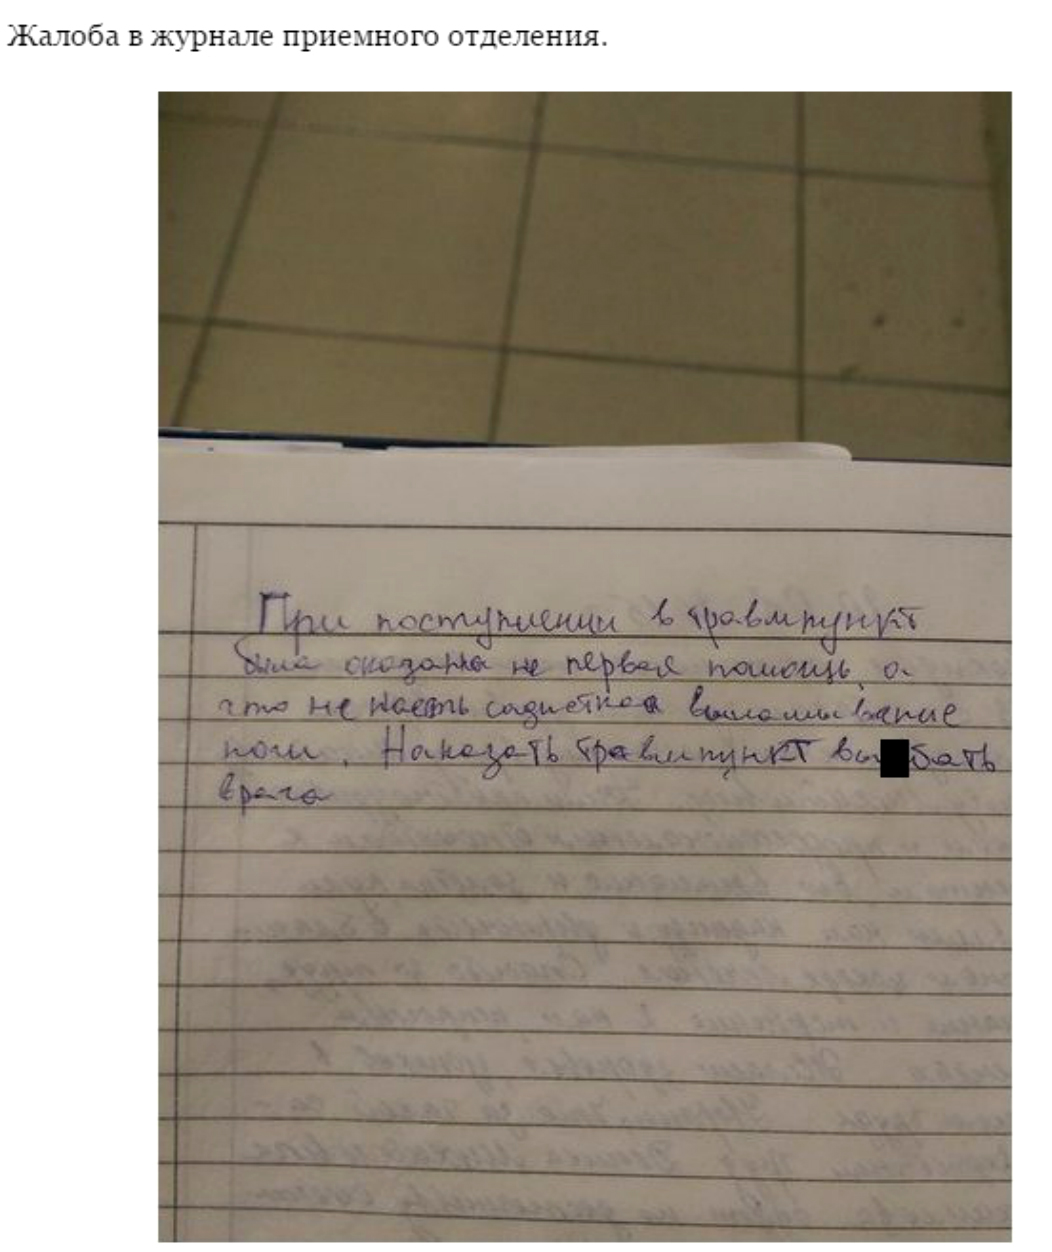 Жалоба в журнале приемного отделения.
При поступлении в травмпункт
была оказана не первая помощь, а
что не насть садисткоа выламывание
ноги. Наказать травмпункт вы бать
врача